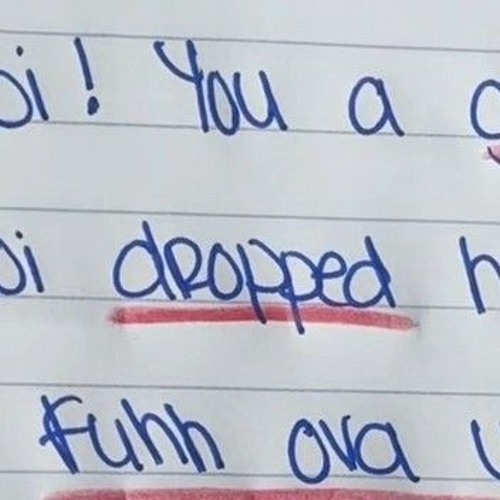 oi! You a
oi dropped h
Fuhh ova